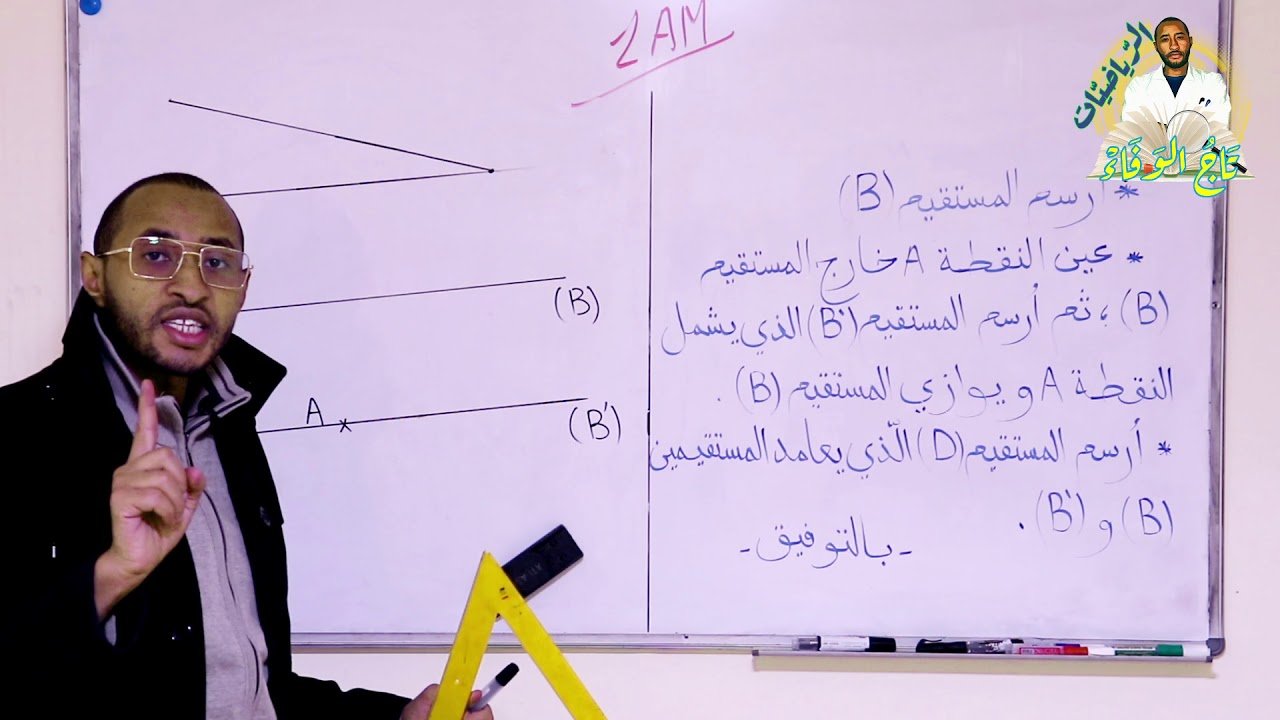 1AM
الرّياضيّات
تَاجُ الوَفَاءْ
* أرسم المستقيم (B)
* عين النقطة A خارج المستقيم
(B) ، ثم أرسم المستقيم (B') الذي يشمل
النقطة A و يوازي المستقيم (B) .
* أرسم المستقيم (D) الّذي يعامد المستقيمين
(B) و (B') .
- بالتوفيق -
(B)
A
(B')
ATLAS